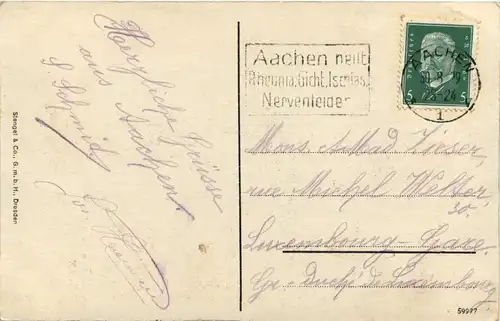 Herzliche Grüsse
aus Aachen
S. Schmitz
Stengel & Co., G. m. b. H., Dresden
Aachen heilt
Rheuma, Gicht, Ischias,
Nervenleiden
AACHEN
1
5 5
Mons
rue Michel Welter
Luxembourg-Gare
Gr. Duché de Luxembourg
59977